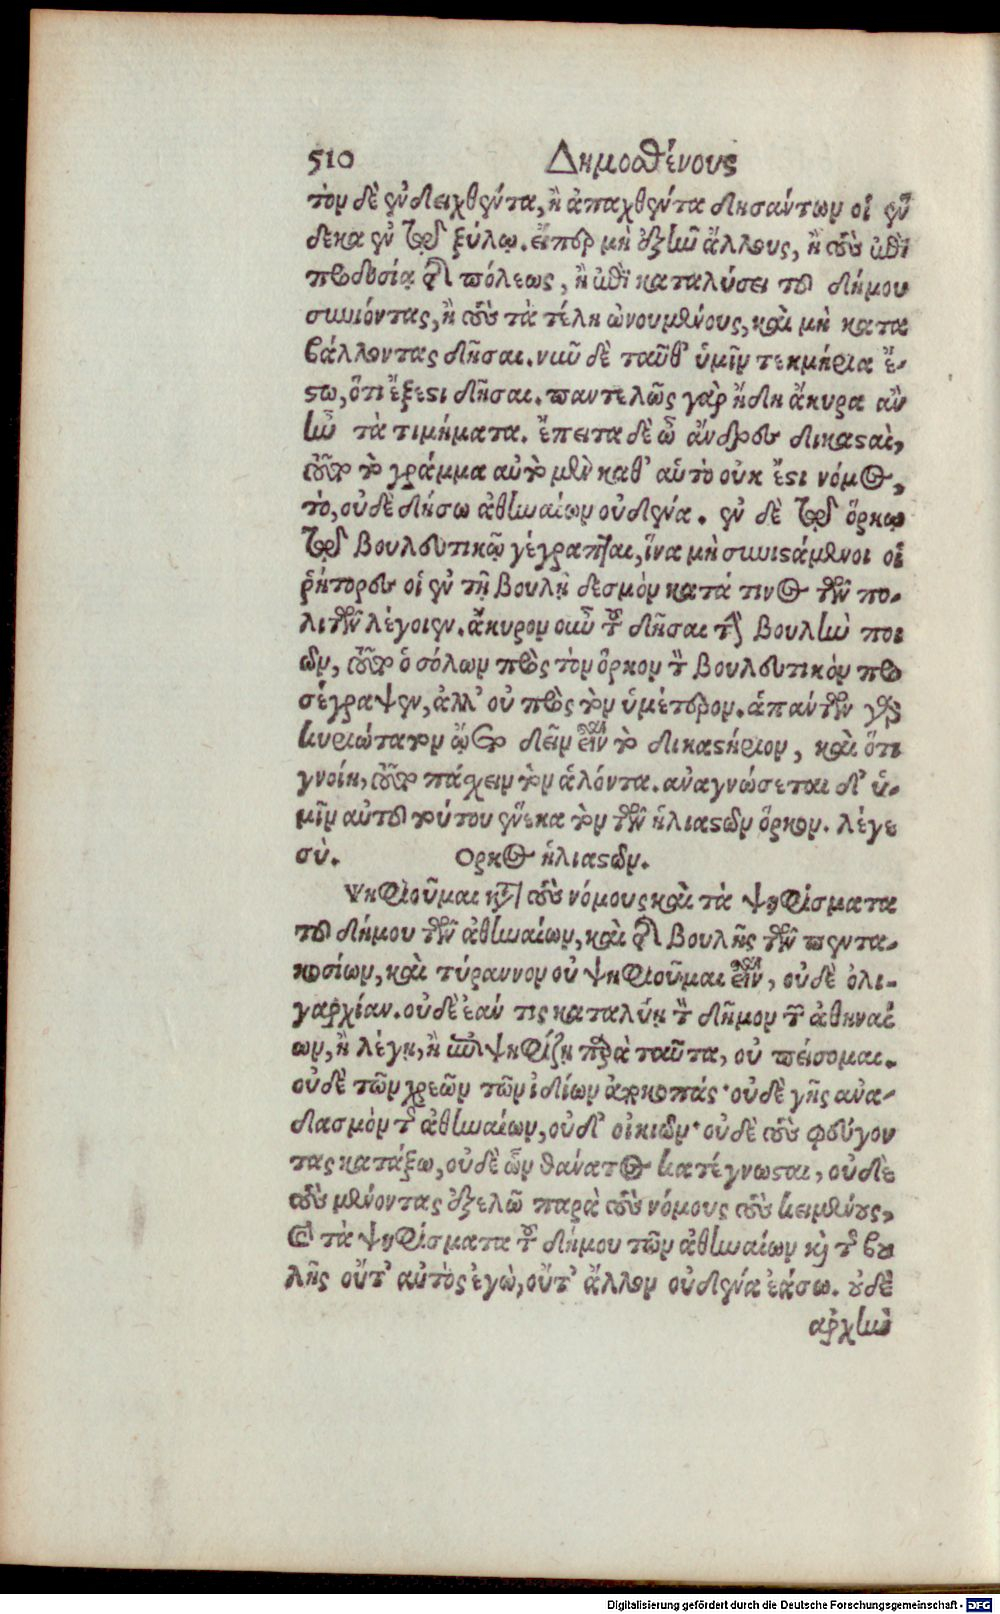 510 Δημοσθένους
τὸν δὲ ἐνδειχθέντα, ἢ ἀπαχθέντα δησάντων οἱ ἕν
δεκα ἐν τῷ ξύλῳ. εἴπερ μὴ ἐξῆν ἄλλους, ἢ τοὺς ἐπὶ
προδοσίᾳ τῆς πόλεως, ἢ ἐπὶ καταλύσει τοῦ δήμου
συνιόντας, ἢ τοὺς τὰ τέλη ὠνουμένους, καὶ μὴ κατα
βάλλοντας δῆσαι. νῦν δὲ ταῦθ' ὑμῖν τεκμήρια ἔ-
στω, ὅτι ἔξεστι δῆσαι. παντελῶς γὰρ ἤδη ἄκυρα ἂν
ἦν τὰ τιμήματα. ἔπειτα δὲ ὦ ἄνδρες δικασταὶ,
τοῦτο τὸ γράμμα αὐτὸ μὲν καθ' αὑτὸ οὐκ ἔστι νόμος,
τὸ, οὐδὲ δήσω ἀθηναίων οὐδένα. ἐν δὲ τῷ ὅρκῳ
τῷ βουλευτικῷ γέγραπται, ἵνα μὴ συνιστάμενοι οἱ
ῥήτορες οἱ ἐν τῇ βουλῇ δεσμὸν κατά τινος τῶν πο-
λιτῶν λέγοιεν. ἄκυρον οὖν τοῦ δῆσαι τὴν βουλὴν ποι
ῶν, τοῦτο ὁ σόλων πρὸς τὸν ὅρκον τὸν βουλευτικὸν προ
σέγραψεν, ἀλλ' οὐ πρὸς τὸν ὑμέτερον. ἁπάντων γὰρ
κυριώτατον ᾤετο δεῖν εἶναι τὸ δικαστήριον, καὶ ὅτι
γνοίη, τοῦτο πάσχειν τὸν ἁλόντα. ἀναγνώσεται δ' ὑ-
μῖν αὐτοῦ τούτου ἕνεκα τὸν τῶν ἡλιαστῶν ὅρκον. λέγε
σύ. Ορκος ἡλιαστῶν.
Ψηφιοῦμαι κατὰ τοὺς νόμους καὶ τὰ ψηφίσματα
τοῦ δήμου τῶν ἀθηναίων, καὶ τῆς βουλῆς τῶν πεντα-
κοσίων, καὶ τύραννον οὐ ψηφιοῦμαι εἶναι, οὐδὲ ὀλι-
γαρχίαν. οὐδὲ ἐάν τις καταλύῃ τὸν δῆμον τὸν ἀθηναί
ων, ἢ λέγῃ, ἢ ἐπιψηφίζῃ παρὰ ταῦτα, οὐ πείσομαι.
οὐδὲ τῶν χρεῶν τῶν ἰδίων ἀποκοπάς· οὐδὲ γῆς ἀνα-
δασμὸν τῆς ἀθηναίων, οὐδ' οἰκιῶν· οὐδὲ τοὺς φεύγον
τας κατάξω, οὐδὲ ὧν θάνατος κατέγνωσται, οὐδὲ
τοὺς μένοντας ἐξελῶ παρὰ τοὺς νόμους τοὺς κειμένους,
καὶ τὰ ψηφίσματα τοῦ δήμου τῶν ἀθηναίων καὶ τῆς βου
λῆς οὔτ' αὐτὸς ἐγὼ, οὔτ' ἄλλον οὐδένα ἐάσω. οὐδὲ
ἀρχὴν
Digitalisierung gefördert durch die Deutsche Forschungsgemeinschaft - DFG